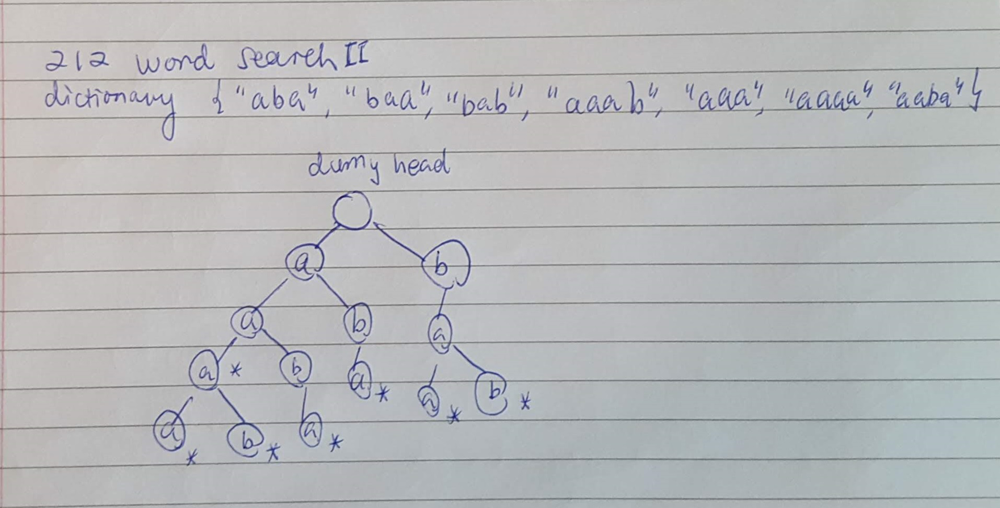 212 word search II
dictionary {"aba", "baa", "bab", "aaab", "aaa", "aaaa", "aaba"}
dumy head
a b
a b a
a * b a * a * b *
a * b * a *